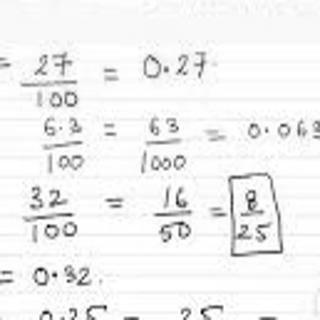 = 27/100 = 0.27
6.3/100 = 63/1000 = 0.063
32/100 = 16/50 = 8/25
= 0.32.
0.25 = 25 =